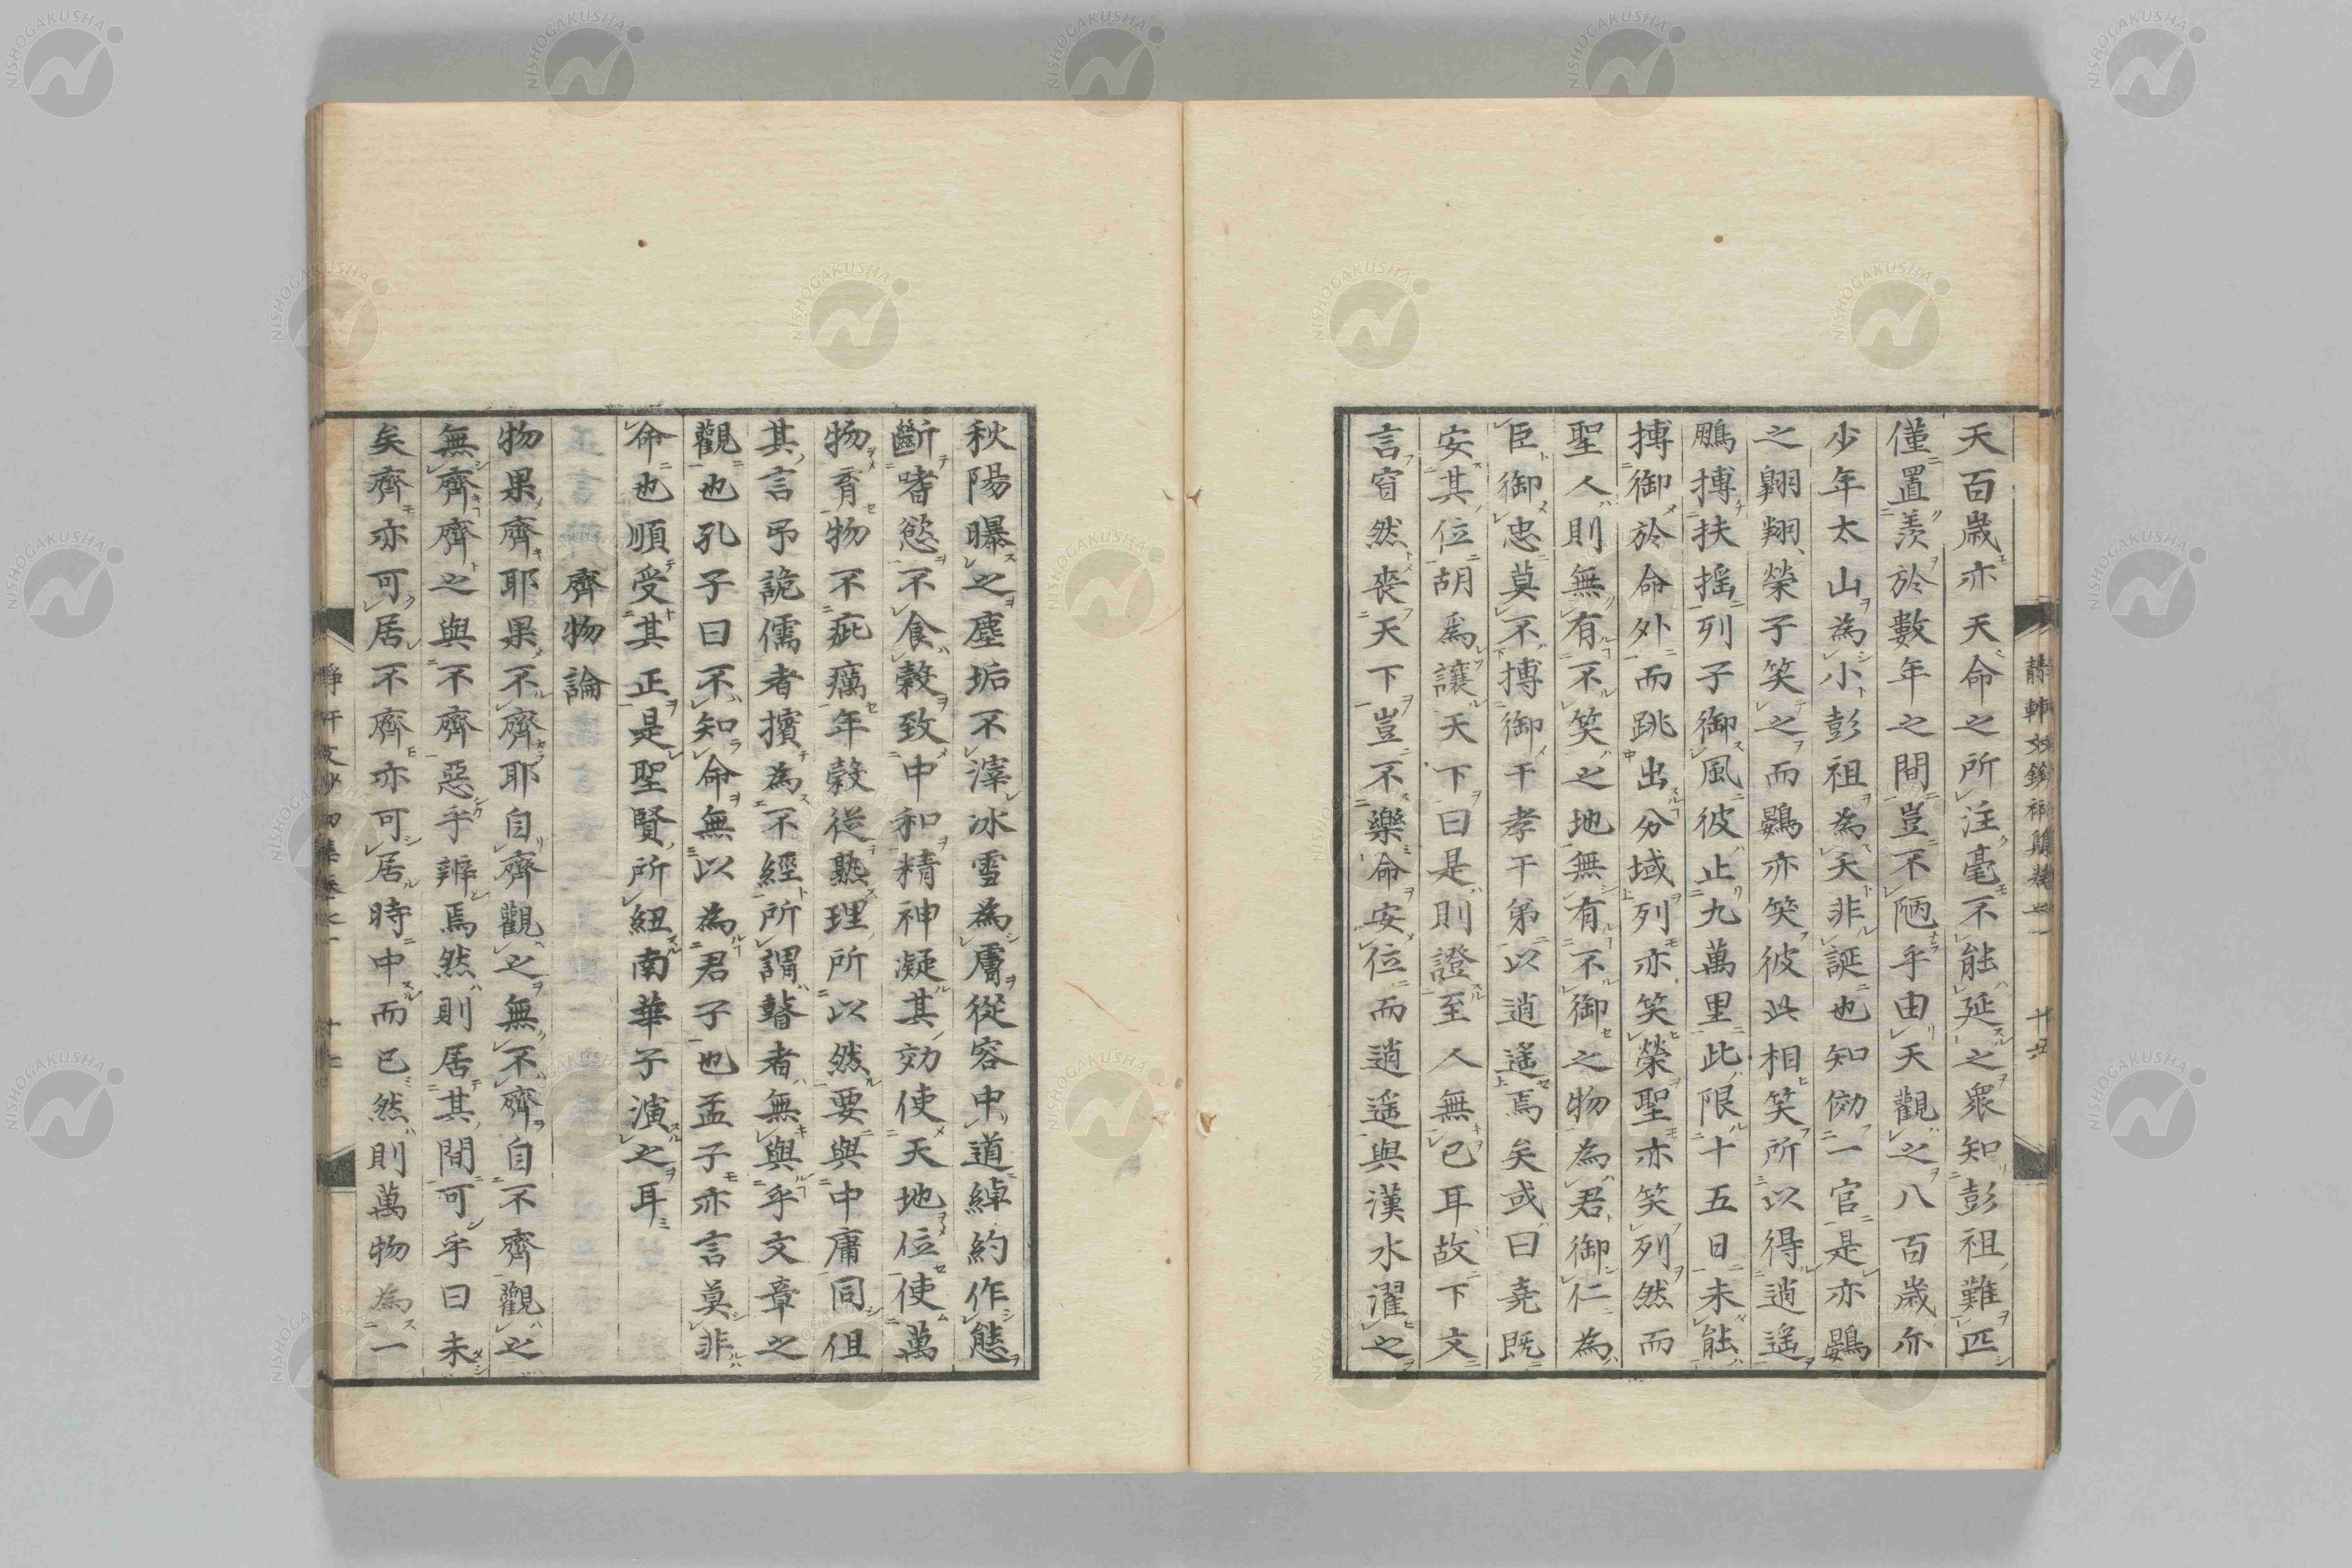 天百歲亦天命之所注毫不能延之衆知彭祖難匹
僅置羨於數年之間豈不陋乎由天觀之八百歲亦
少年太山為小彭祖為夭非誕也知効一官是亦鷃
之翺翔榮子笑之而鷃亦笑彼此相笑所以得逍遥
鵬搏扶揺列子御風彼止九萬里此限十五日未能
搏御於命外而跳出分域列亦笑榮聖亦笑列然而
聖人則無有不笑之地無有不御之物為君御仁為
臣御忠莫不搏御干孝干弟以逍遥焉矣或曰堯既
安其位胡爲讓天下曰是則證至人無已耳故下文
言窅然喪天下豈不樂命安位而逍遥與漢水濯之
秋陽曝之塵垢不滓冰雪為膚從容中道綽約作態
斷嗜慾不食穀致中和精神凝其効使天地位使萬
物育物不疵癘年穀從熟理所以然要與中庸同但
其言吊詭儒者擯為不經所謂瞽者無與乎文章之
觀也孔子曰不知命無以為君子也孟子亦言莫非
命也順受其正是聖賢所紐南華子演之耳
齊物論
物果齊耶果不齊耶自齊觀之無不齊自不齊觀之
無齊齊之與不齊惡乎辨焉然則居其間可乎曰未
矣齊亦可居不齊亦可居時中而已然則萬物為一
NISHOGAKUSHA